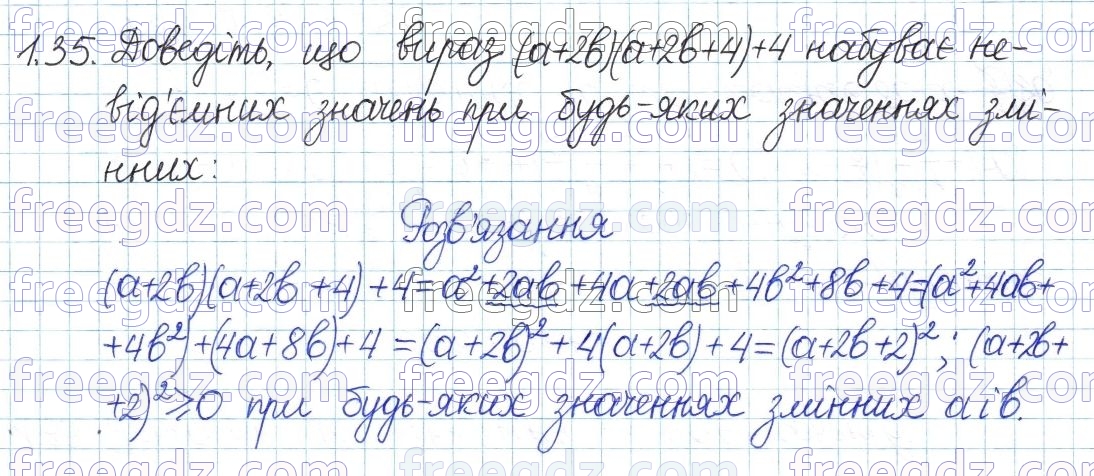 1.35. Доведіть, що вираз (a+2b)(a+2b+4)+4 набуває не-
від'ємних значень при будь-яких значеннях змі-
нних:
Розв'язання
(a+2b)(a+2b+4)+4=a²+2ab+4a+2ab+4b²+8b+4=(a²+4ab+
+4b²)+(4a+8b)+4=(a+2b)²+4(a+2b)+4=(a+2b+2)²; (a+2b+
+2)²⩾0 при будь-яких значеннях змінних a і b.
freegdz.com